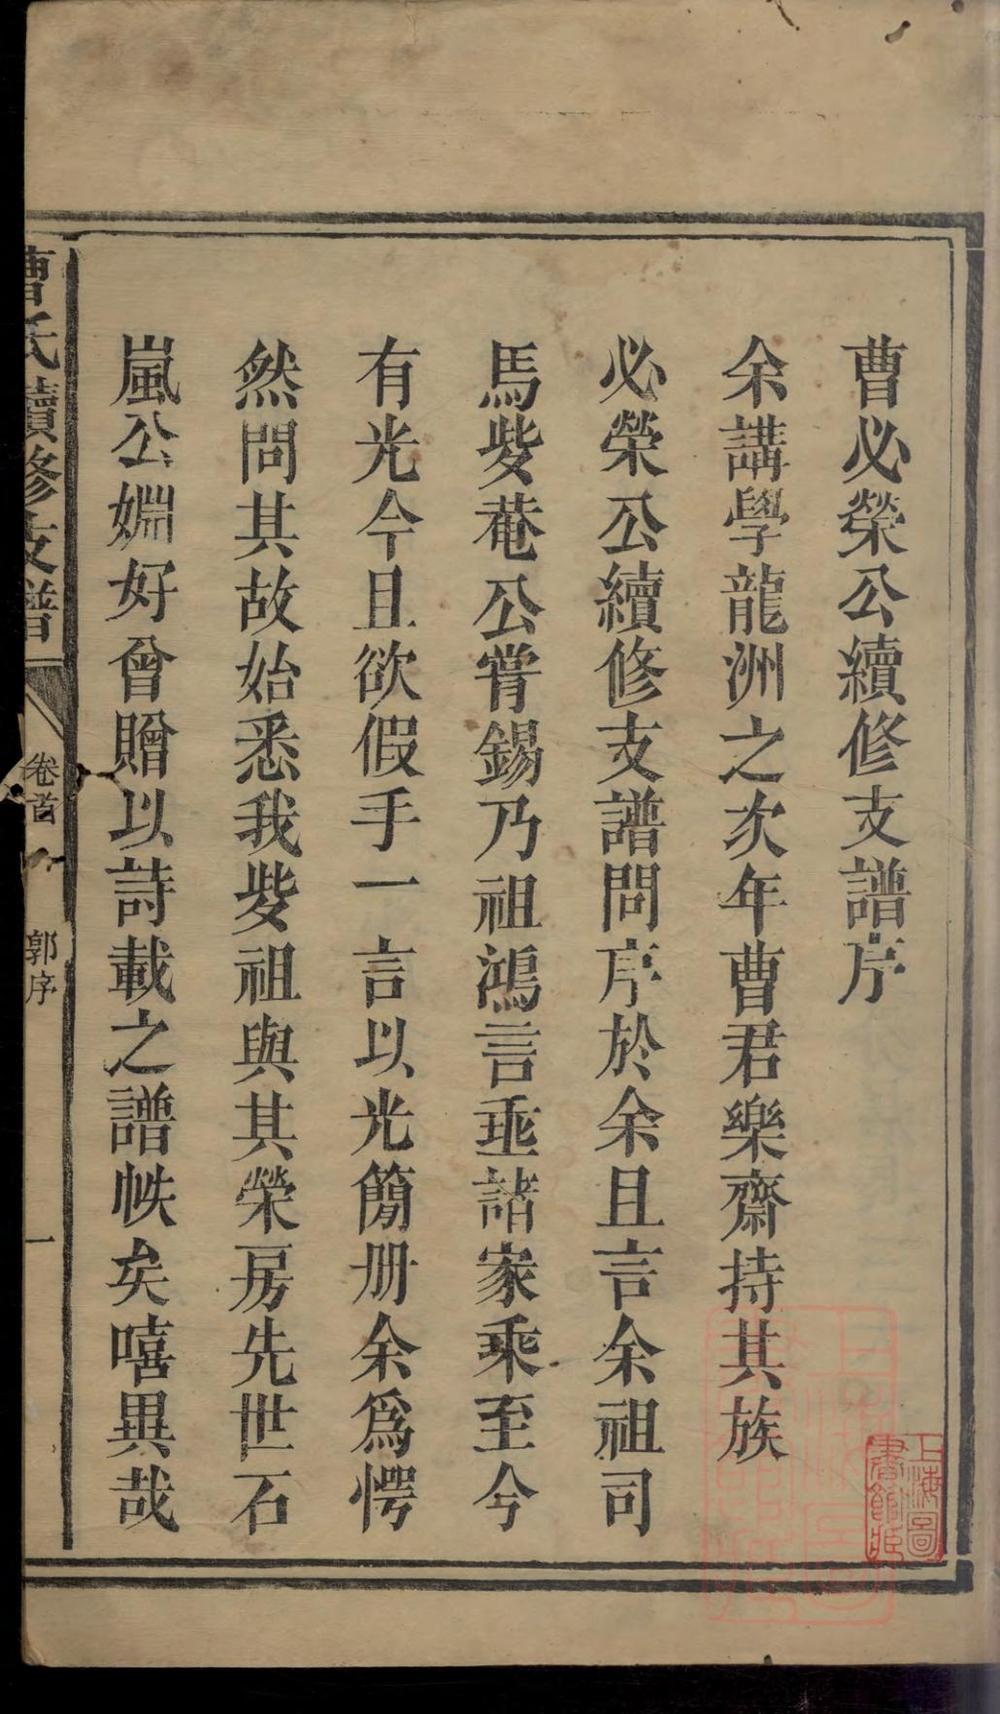 曹必榮公續修支譜序
余講學龍洲之次年曹君樂齋持其族
必榮公續修支譜問序於余且言余祖司
馬婓菴公嘗錫乃祖鴻言垂諸家乘至今
有光今且欲假手一言以光簡册余爲愕
然問其故始悉我婓祖與其榮房先世石
嵐公婣好曾贈以詩載之譜帙矣嘻異哉
曹氏續修支譜
卷首
郭序
一
上海圖
書館藏